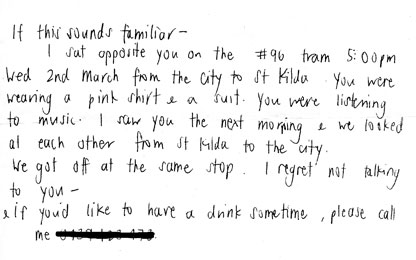 If this sounds familiar -
I sat opposite you on the #96 tram 5:00pm
Wed 2nd March from the city to St Kilda. You were
wearing a pink shirt & a suit. You were listening
to music. I saw you the next morning & we looked
at each other from St Kilda to the city.
We got off at the same stop. I regret not talking
to you -
& if you'd like to have a drink sometime, please call
me